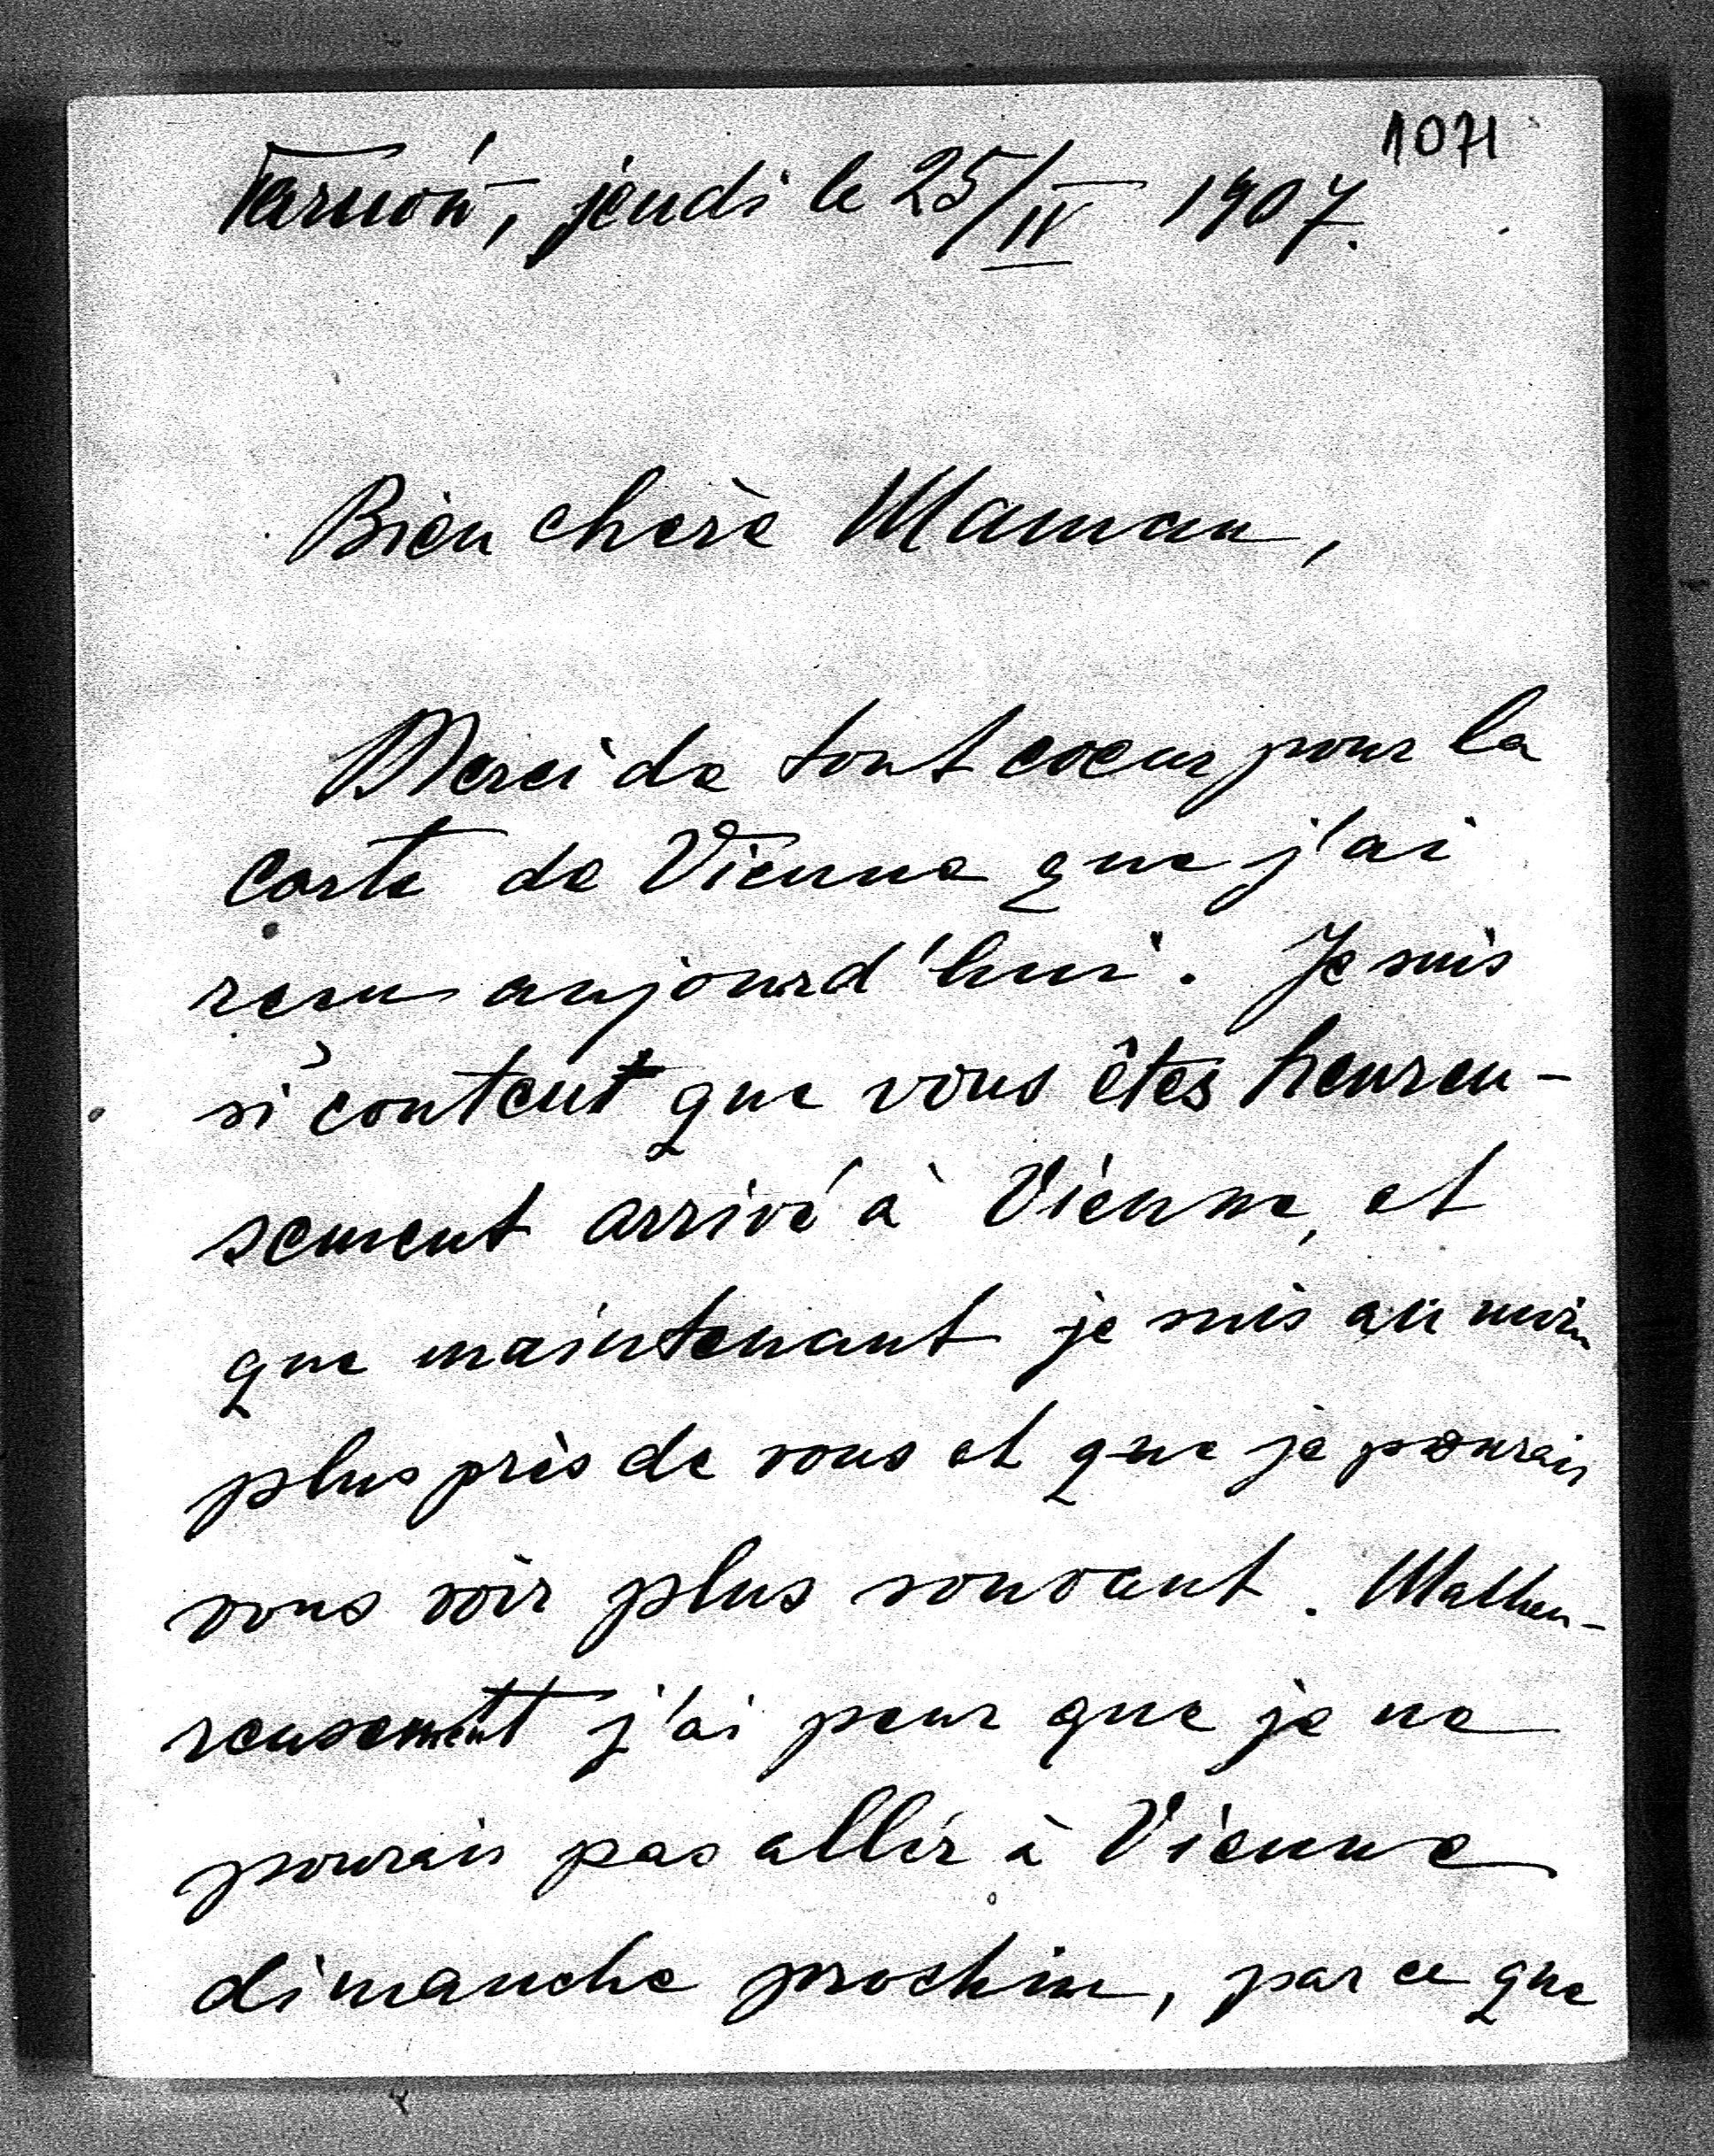 1071
Tarnów, jeudi le 25/IV 1907.
Bien chère Maman,
Merci de tout coeur pour la
carte de Vienne que j'ai
reçu aujourd'hui. Je suis
si content que vous êtes heureu-
sement arrivé à Vienne, et
que maintenant je suis au moin
plus près de vous et que je pourais
vous voir plus souvant. Malheu-
reusement j'ai peur que je ne
pourais pas allir à Vienne
dimanche prochin, par ce que